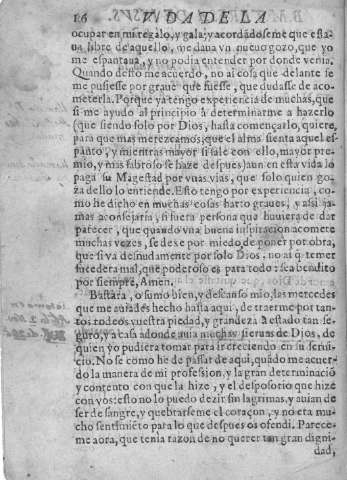 16 VIDA DE LA
ocupar en mi regalo, y gala; y acordádoseme que esta-
ua libre de aquello, me daua vn nueuo gozo, que yo
me espantaua, y no podia entender por donde venia.
Quando desto me acuerdo, no ay cosa que delante se
me pusiesse por graue que fuesse, que dudasse de aco-
meterla. Porque ya tengo experiencia de muchas, que
si me ayudo al principio à determinarme a hazerlo
(que siendo solo por Dios, hasta començarlo, quiere,
para que mas merezcamos, que el alma sienta aquel es-
panto, y mientras mayor si sale con ello, mayor pre-
mio, y mas sabroso se haze despues) aun en esta vida lo
paga su Magestad por vnas vias, que solo quien go-
za dello lo entiende. Esto tengo por experiencia, co-
mo he dicho en muchas cosas harto graues, y assi ja-
mas aconsejaria, si fuera persona que huuiera de dar
parecer, que quando vna buena inspiracion acomete
muchas vezes, se dexe por miedo de poner por obra,
que si va desnudamente por solo Dios, no ay q̃ temer
sucedera mal, que poderoso es para todo: sea bendito
por siempre, Amen.
Bastara, o sumo bien, y descanso mio, las mercedes
que me auiades hecho hasta aqui, de traerme por tan-
tos rodeos vuestra piedad, y grandeza à estado tan se-
guro, y a casa adonde auia muchas sieruas de Dios, de
quien yo pudiera tomar para ir creciendo en su serui-
cio. No se como he de passar de aqui, quãdo me acuer-
do la manera de mi profession, y la gran determinació
y contento con que la hize, y el desposorio que hize
con vos: esto no lo puedo dezir sin lagrimas, y auian de
ser de sangre, y quebrarseme el coraçon, y no era mu-
cho sentimiēto para lo que despues os ofendi. Parece-
me aora, que tenia razon de no querer tan gran digni-
dad,